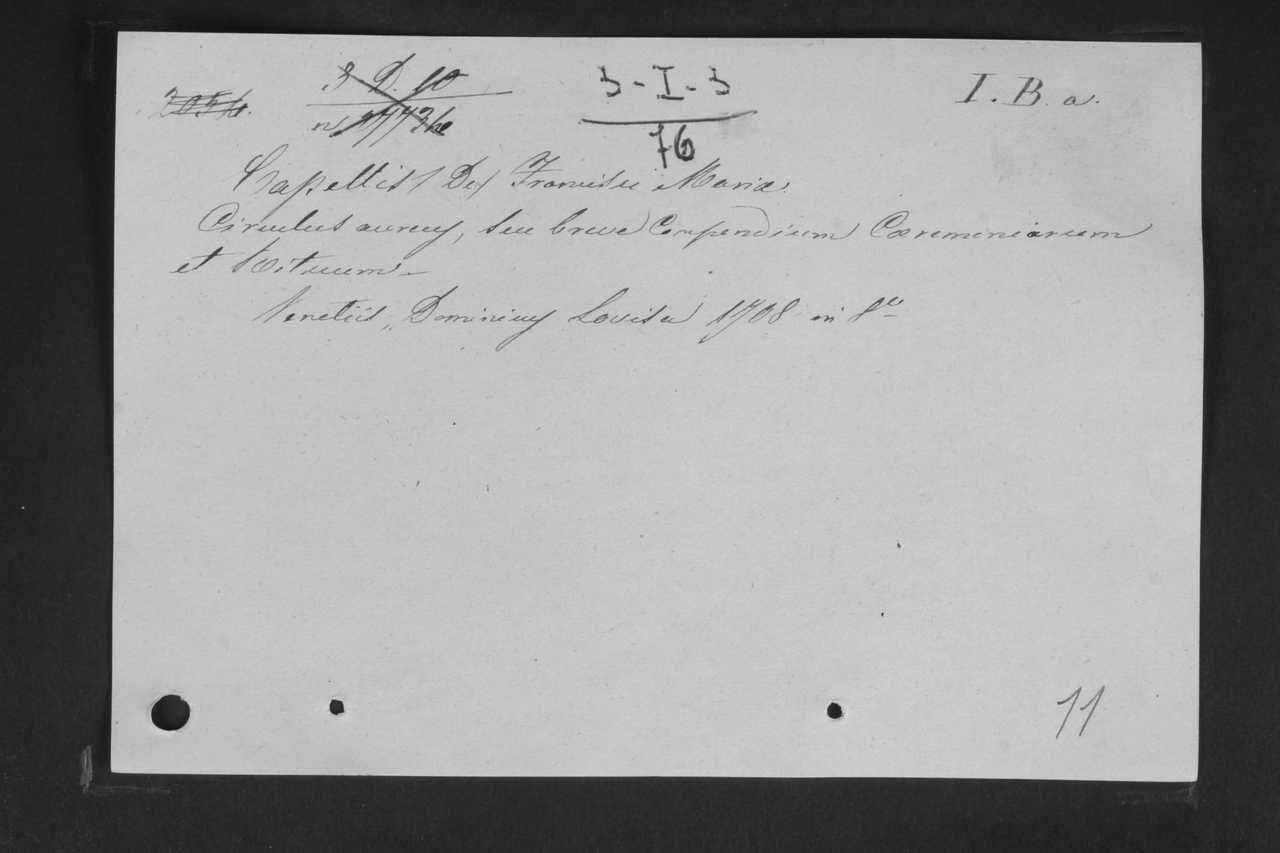 3 - I - 3
76
I. B. a.
Capellis (De) Francisci Maria.
Circulus aureus, seu breve Conpendium Cæremoniarum
et Rituum -
Venetiis, Dominicus Lovisa 1708 in 8º
11